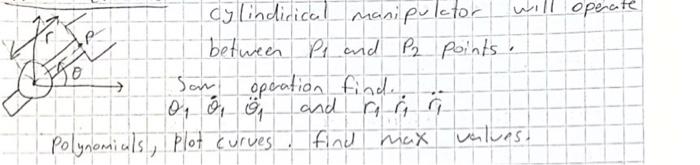 cylindirical manipulator will operate
r P
between P1 and P2 points.
θ
operation find.
θ1 θ̇1 θ̈1 and r1 ṙ1 r̈1
Polynomials, plot curves. find max values.